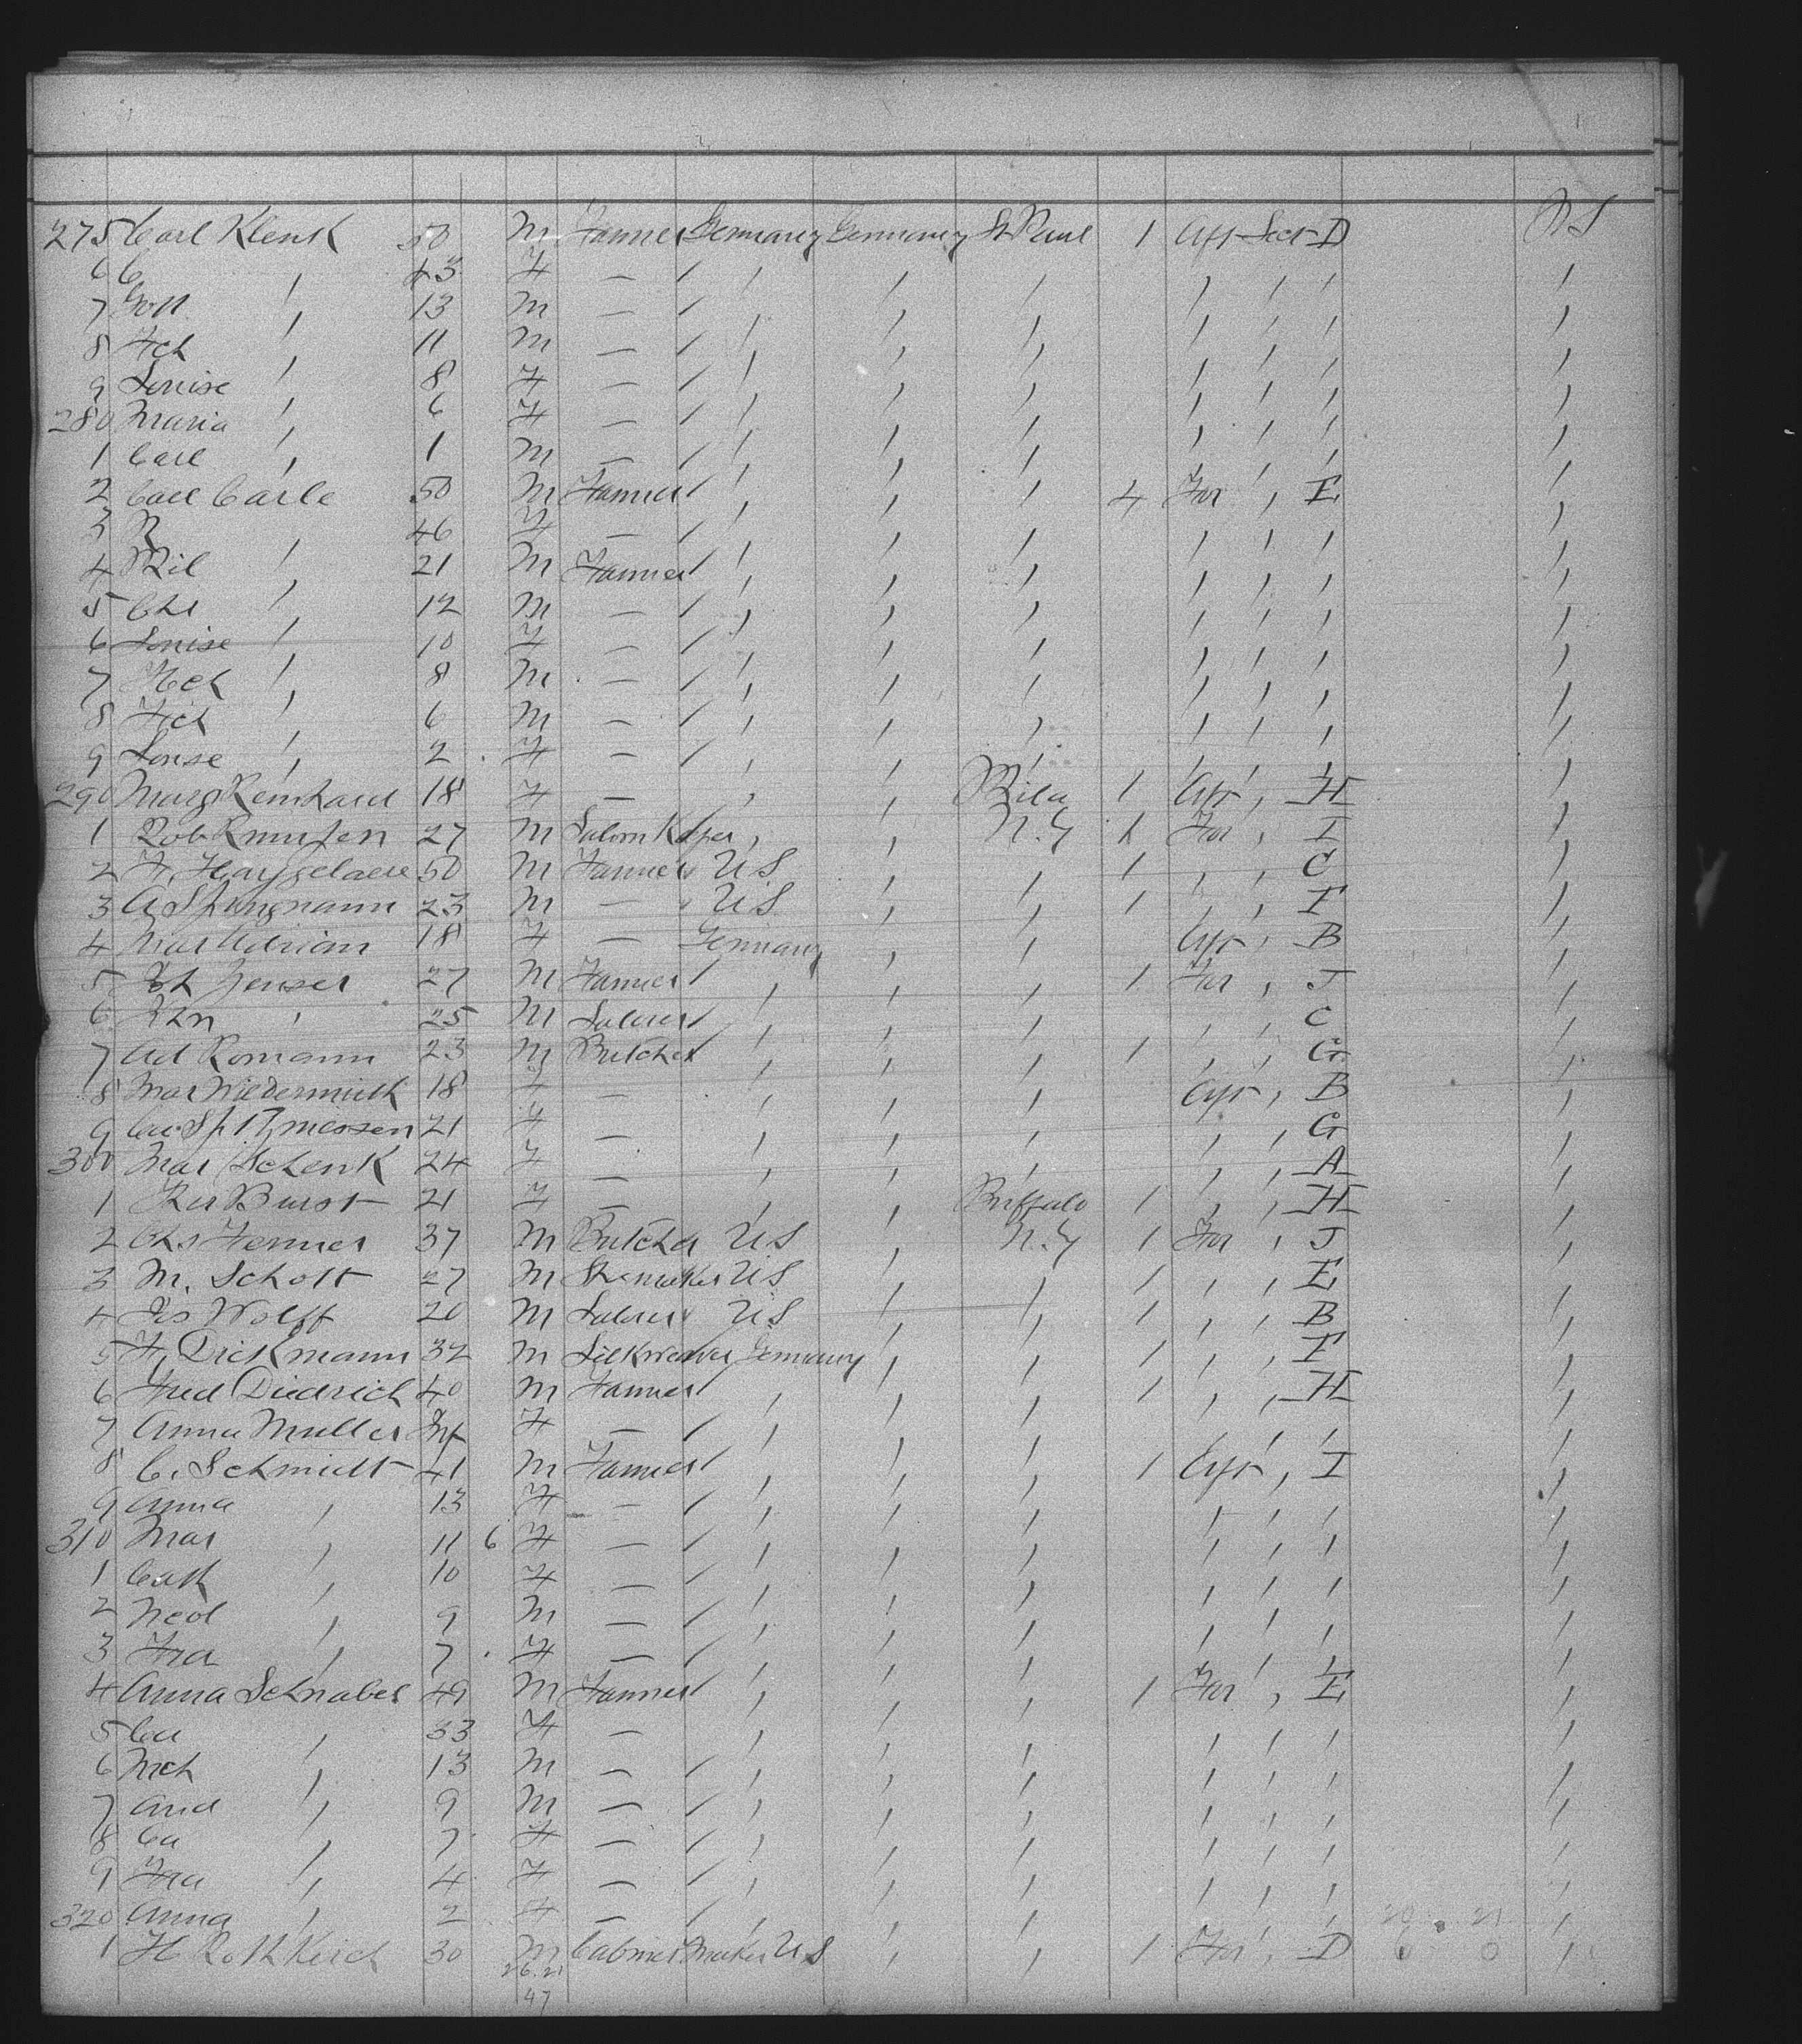 275 Carl Klenk 50 M Farmer Germany Germany St Paul 1 Aft Sect D NS
6 C , 43 F — / , , , , , , ,
7 Gott , 13 M — / , , , , , , ,
8 Fch , 11 M — / , , , , , , ,
9 Louise , 8 F — / , , , , , , ,
280 Maria , 6 F — / , , , , , , ,
1 Carl , 1 M — / , , , , , , ,
2 Carl Carle 50 M Farmer / , , , 4 For , E ,
3 R , 46 F — / , , , , , , ,
4 Wil , 21 M Farmer / , , , , , , ,
5 Chr , 12 M — / , , , , , , ,
6 Louise , 10 F — / , , , , , , ,
7 Hch , 8 M — / , , , , , , ,
8 Fch , 6 M — / , , , , , , ,
9 Louse , 2 F — / , , , , , , ,
290 Marg Reinhard 18 F — , , 1 Aft , H ,
1 Rob 27 M Saloon Keper , , N.Y 1 For , I ,
2 F. 50 M Farmer US , , 1 , , C ,
3 A 23 M — US , , 1 , , F ,
4 Mar Adrian 18 F — Germany , , Aft , B ,
5 Jenser 27 M Farmer / , , , 1 For , J ,
6 , 25 M Laborer / , , , , , C ,
7 Ad Romann 23 M Butcher / , , , 1 , , G ,
8 Mar 18 F — , , , Aft , B ,
9 21 F — , , , , , G ,
300 Mar Schenk 24 F — , , , , , A ,
1 Burst 21 F — , , Buffalo 1 , , H ,
2 Chs Fenner 37 M Butcher US , N.Y 1 For , J ,
3 M. Schott 27 M Shemaker US , , 1 , , E ,
4 Wolff 20 M Laborer US , , 1 , , B ,
5 F, Dickmann 32 M Silkweaver Germany , , 1 , , F ,
6 Fred Diedrich 40 M Farmer / , , , 1 , , H ,
7 Anna Muller F — / , , , , , , ,
8 C. Schmidt 41 M Farmer / , , , 1 Aft , I ,
9 Anna , 13 F — / , , , , , , ,
310 Mar , 11 6 F — / , , , , , , ,
1 Cath , 10 F — / , , , , , , ,
2 , 9 M — / , , , , , , ,
3 Fra , 7 F — / , , , , , , ,
4 Anna Schnabel 49 M Farmer / , , , 1 For , E ,
5 , 33 F — , , , , , , ,
6 Mch , 13 M — / , , , , , , ,
7 And , 9 M — / , , , , , , ,
8 Ca , 7 F — / , , , , , , ,
9 Fra , 4 F — / , , , , , , ,
320 Anna , 2 F — / , , , , , , ,
20 21
1 H Rothkirch 30 M Cabinet Maker US , , 1 For , D 6 0 ,
26.21
47